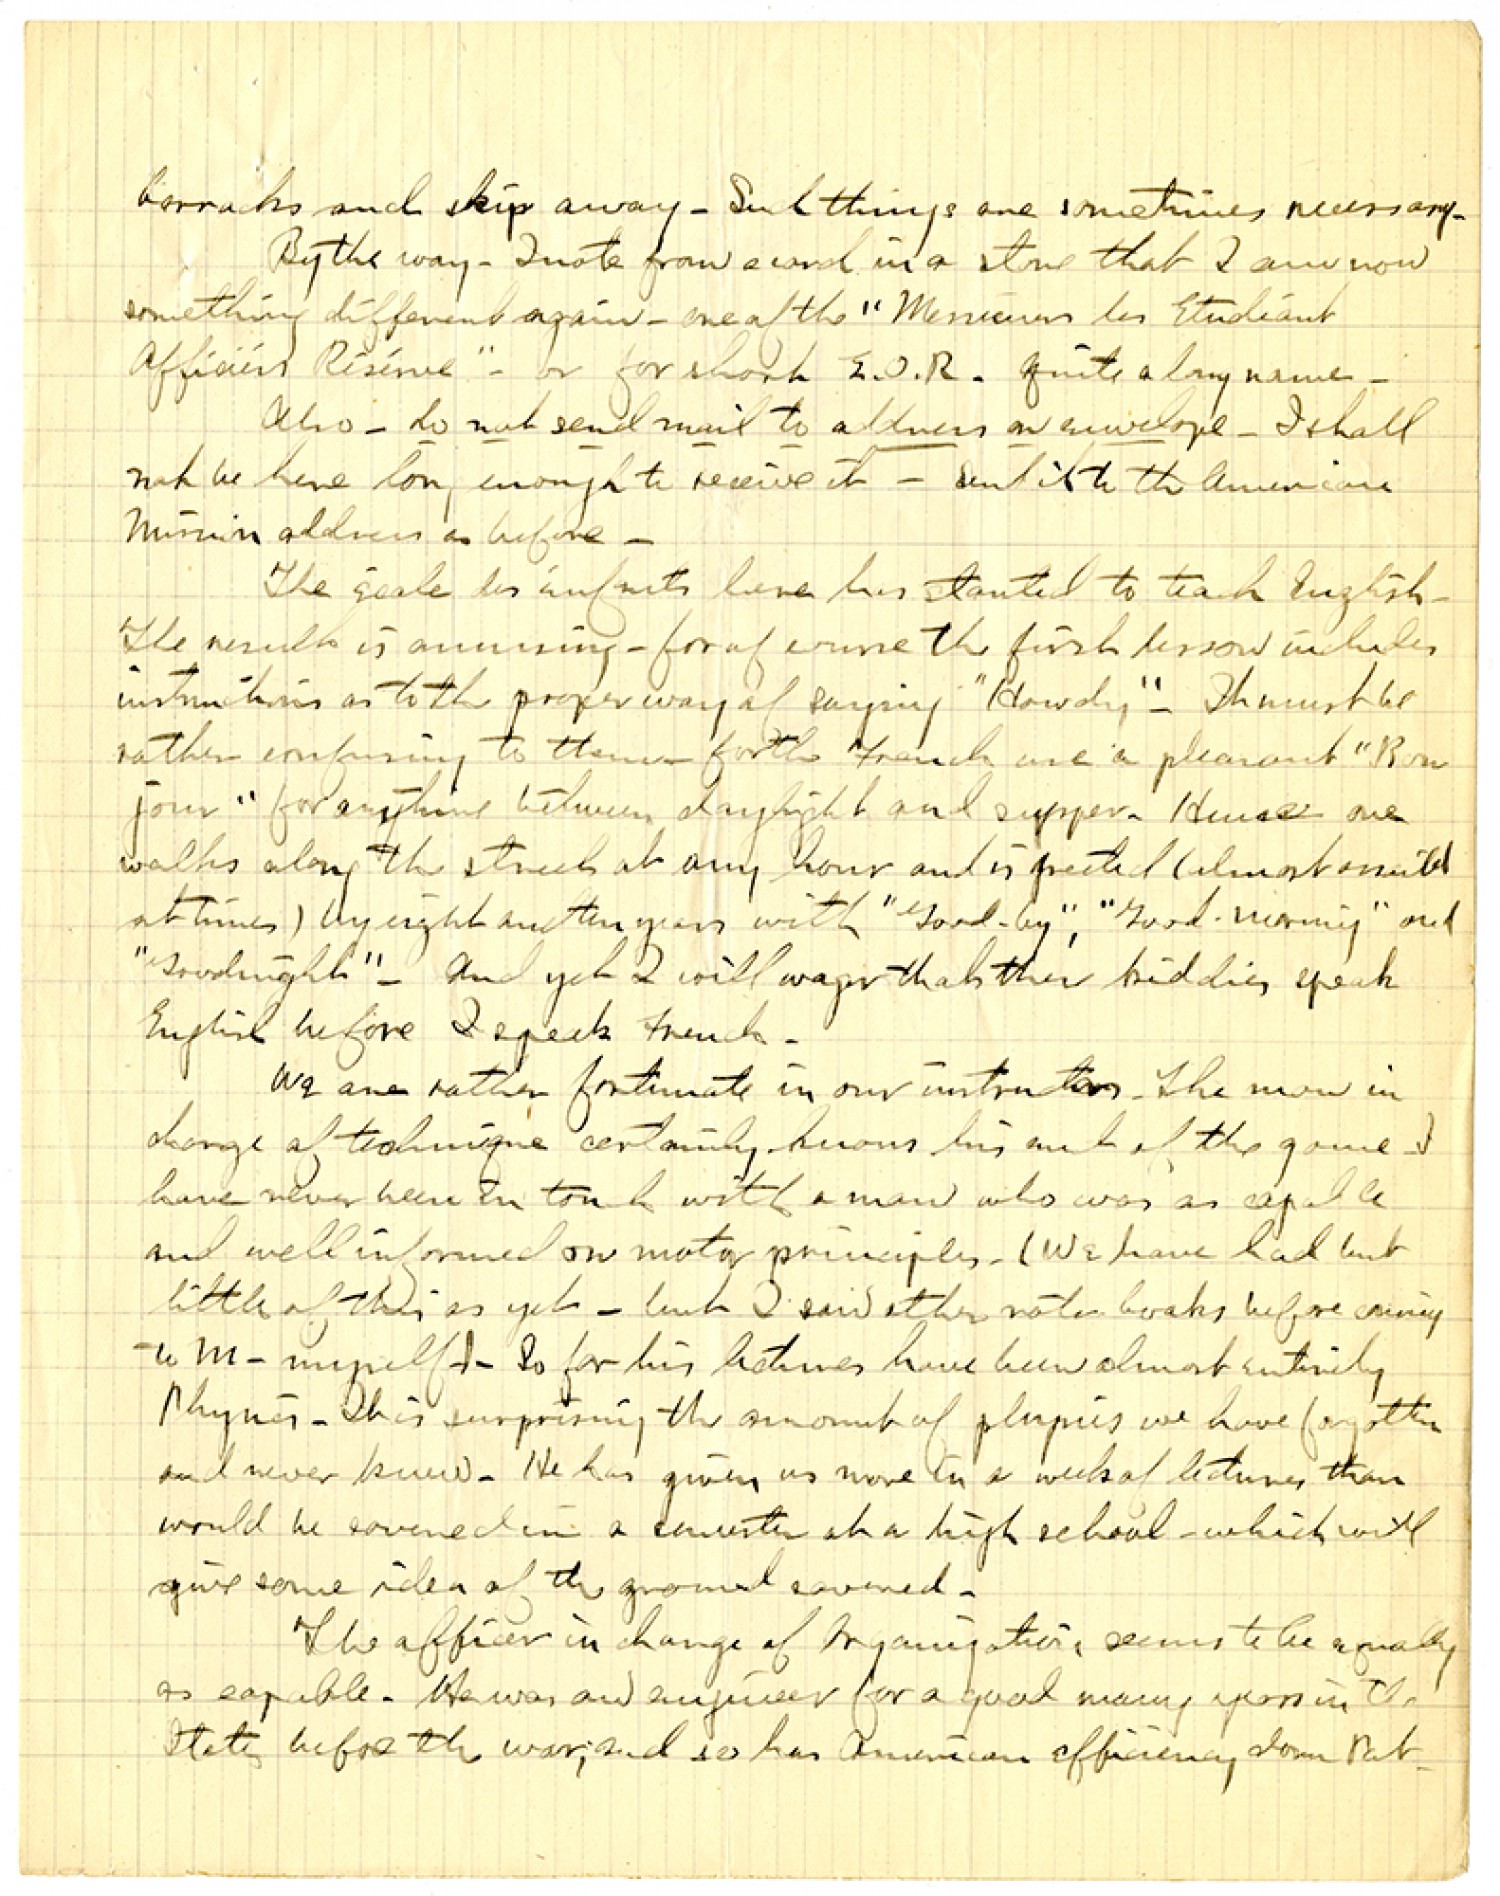 barracks and skip away – Such things are sometimes necessary –
By the way – I note from a card in a store that I am now
something different again – one of the "Messieurs les Etudiant
Officiers Réserve" – or for short E.O.R. – quite a long name –
Also – do not send mail to address on envelope – I shall
not be here long enough to receive it – send it to the American
Mission address as before –
The école des enfants here has started to teach English –
The result is amusing – for of course the first lesson includes
instructions as to the proper way of saying "Howdy" – It must be
rather confusing to them – for the French use a pleasant "Bon
jour" for anytime between daylight and supper – Hence one
walks along the street at any hour and is greeted (almost assailed
at times) by eight and ten years with "Good-by", "Good-morning" and
"Goodnight" – And yet I will wager that these kiddies speak
English before I speak French –
We are rather fortunate in our instructors – The man in
charge of technique certainly knows his end of the game – I
have never been in touch with a man who was as capable
and well informed on motor principles – (We have had but
little of this as yet – but I said other note books before coming
to M – myself) – So far his lectures have been almost entirely
Physics – It is surprising the amount of physics we have forgotten
and never knew – He has given us more in a week of lectures than
would be covered in a semester at a high school – which will
give some idea of the ground covered –
The officer in charge of Organization seems to be equally
as capable – He was an engineer for a good many years in the
States before the war, and so has American efficiency down Pat –